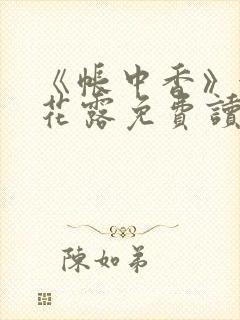 《帳中香》
花露免費讀
陳如弟